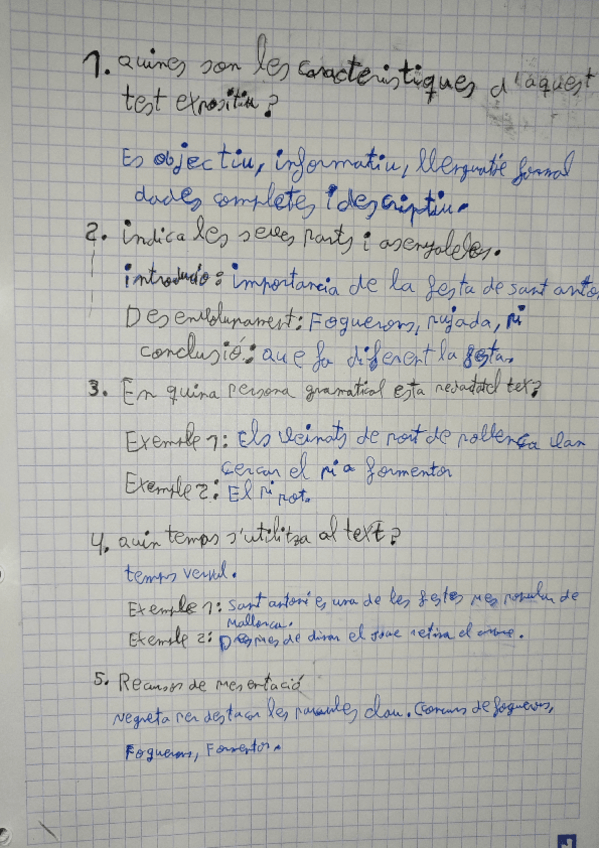 1. quines son les caracteristiques d'aquest
test expositiu?
Es objectiu, informatiu, llenguatje formal
dades completes i descriptiu.
2. indica les seves parts i asenyaleles.
introdució: importancia de la festa de sant antoni
Desenvolupament: Foguerons, pujada, pi
conclusió: que fa diferent la festa.
3. En quina persona gramatical esta redactat el tex?
Exemple 1: Els veinats de port de pollença van
cercar el pi a formentor
Exemple 2: El pi pot.
4. quin temps s'utilitza al text?
temps verbal.
Exemple 1: Sant antoni es una de les festes mes popular de
Mallorca.
Exemple 2: Despres de dinar el
5. Recursos de presentació
Negreta per destacar les paraules clau. Concurs de foguerons,
Foguerons, Formentor.